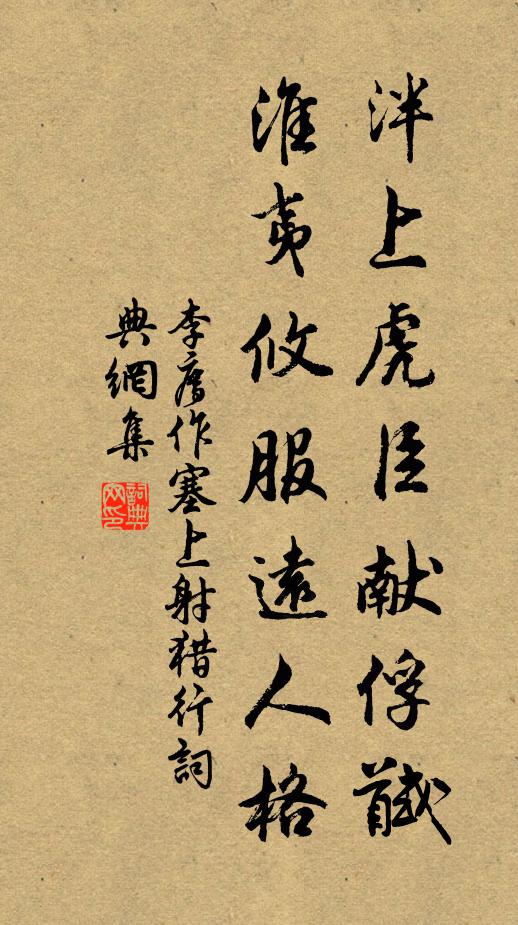 泮上虎臣献俘馘
淮夷攸服遠人格
李廌作塞上射猎行詞
典網集
詞典
网印